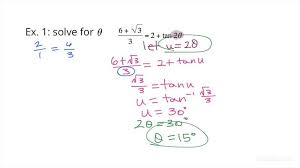 Ex. 1: solve for θ
(6 + √3)/3 = 2 + tan 2θ
2/1 = 6/3
let u = 2θ
(6 + √3)/3 = 2 + tan u
√3/3 = tan u
u = tan⁻¹ √3/3
u = 30°
2θ = 30°
θ = 15°